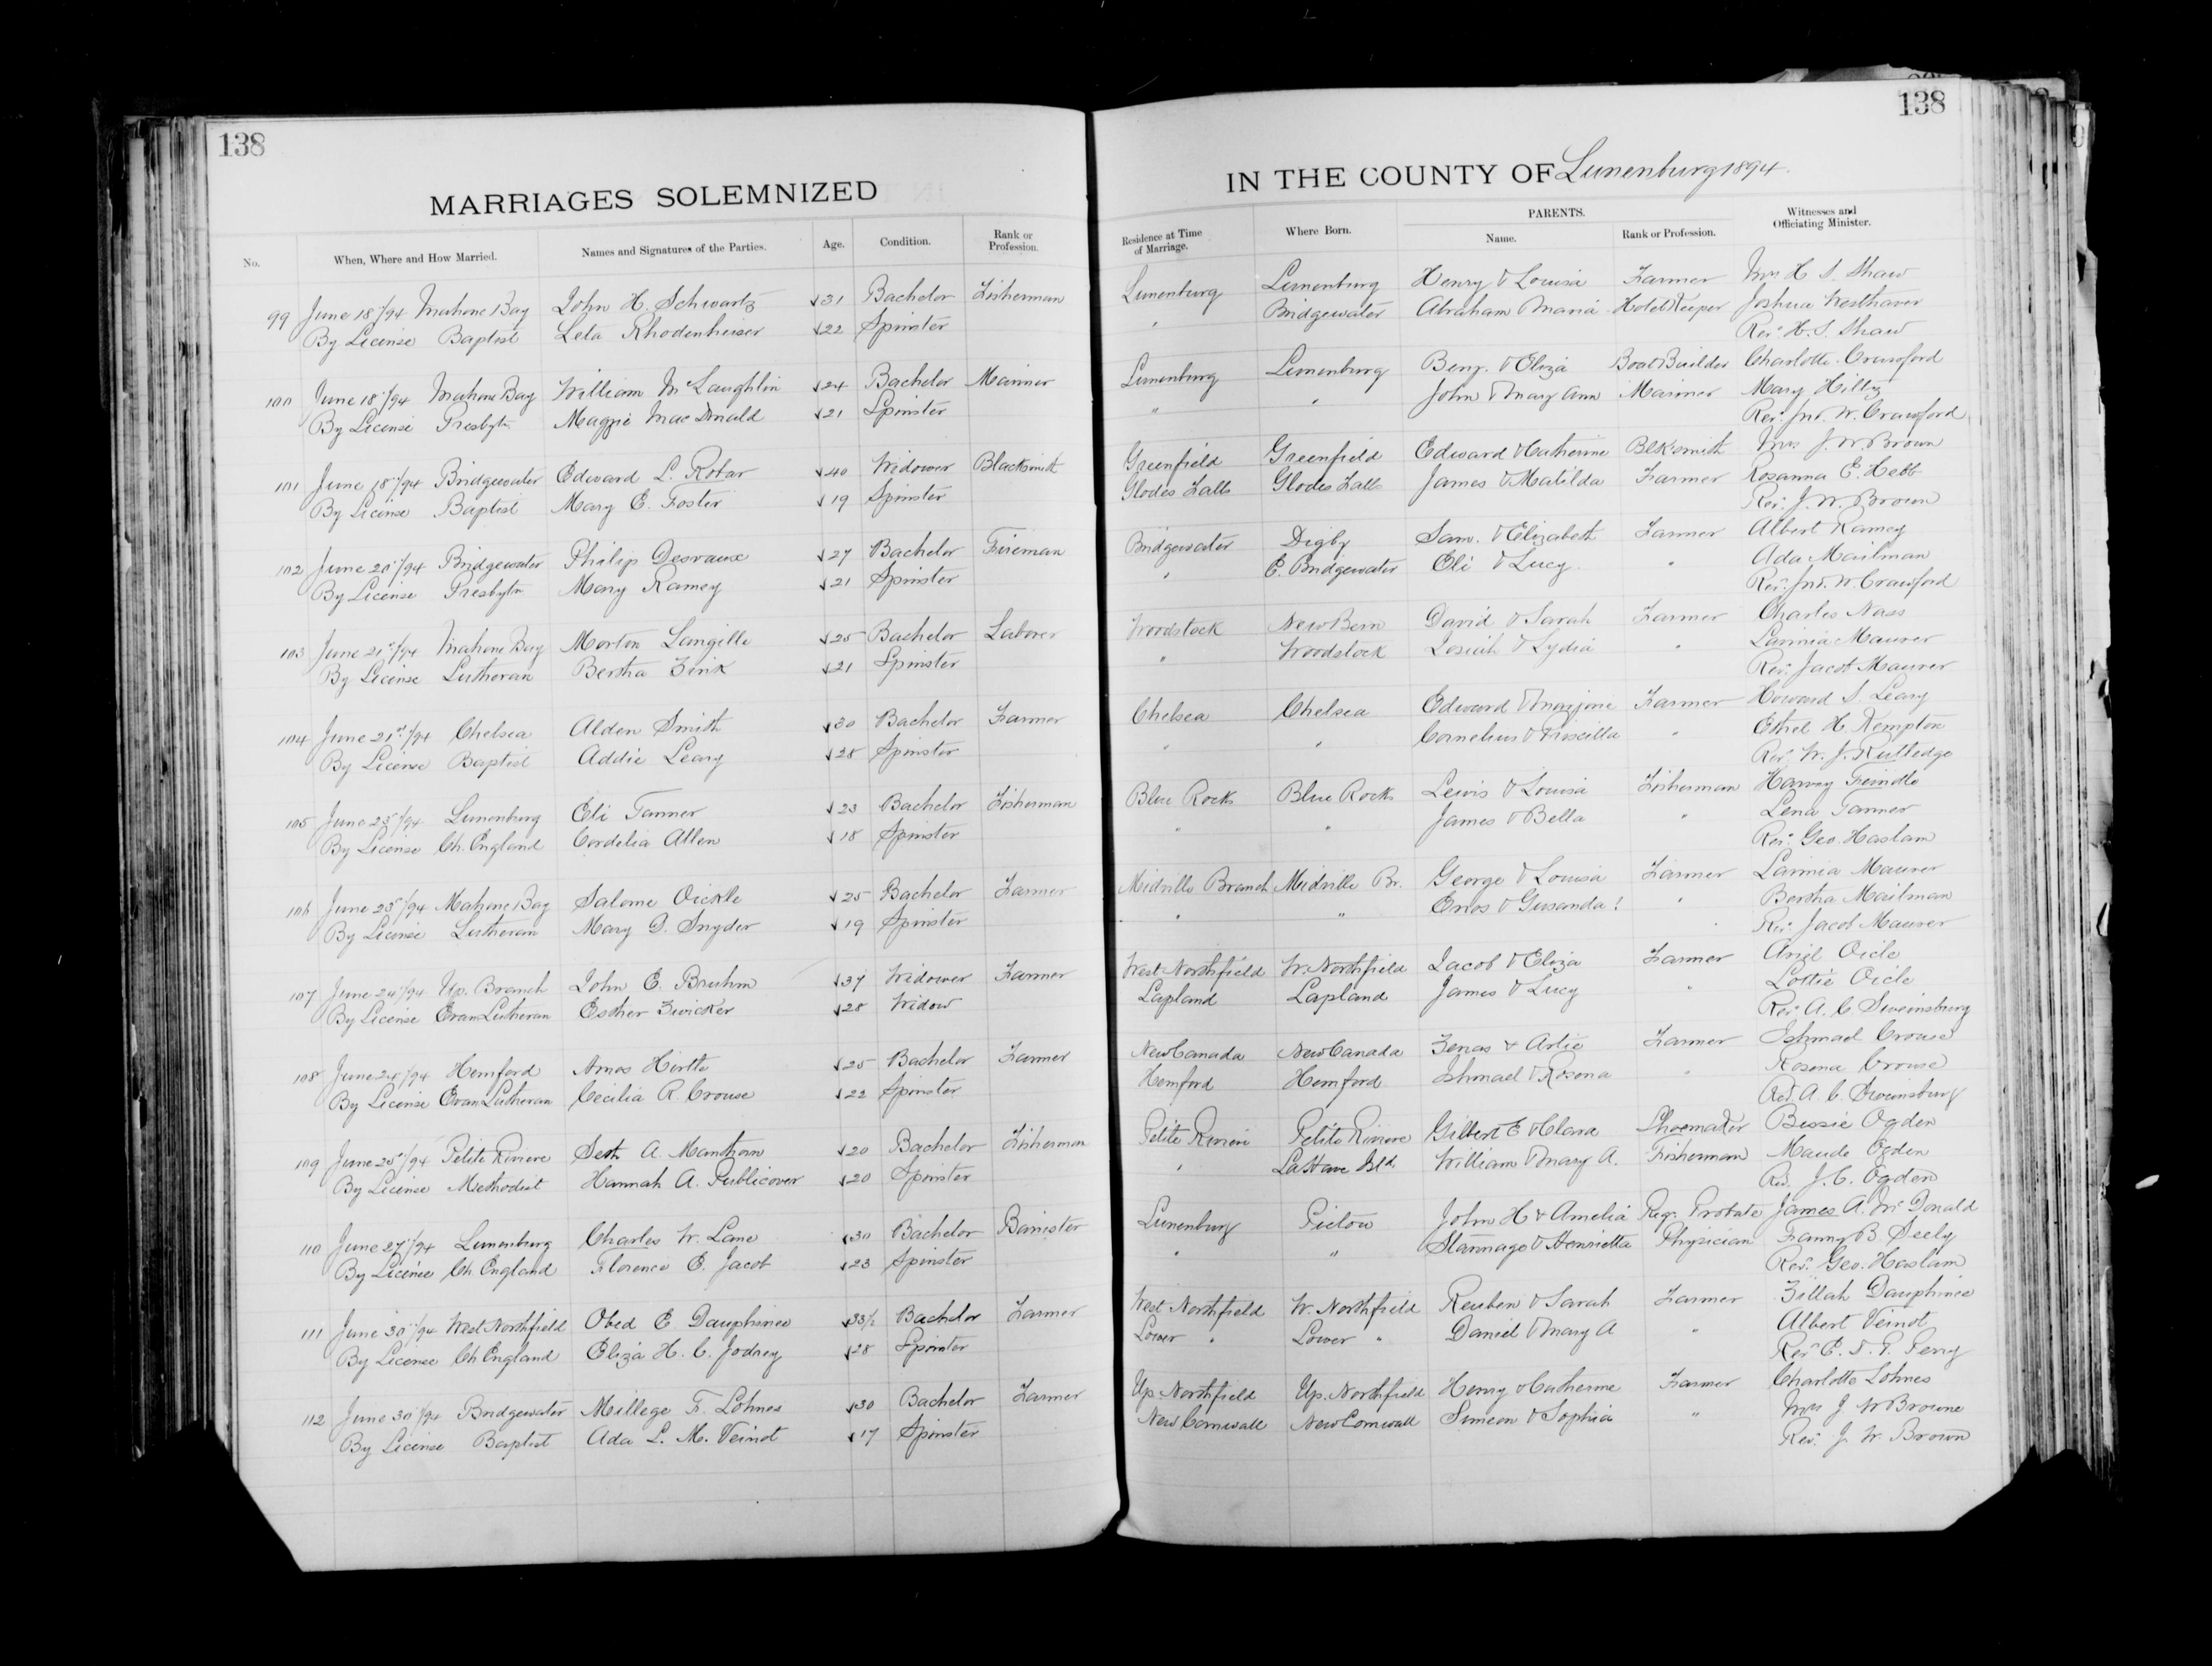 138
138
MARRIAGES SOLEMNIZED
IN THE COUNTY OF Lunenburg 1894.
No. When, Where and How Married. Names and Signatures of the Parties. Age. Condition. Rank or Profession. Residence at Time of Marriage. Where Born. PARENTS. Name. Rank or Profession. Witnesses and Officiating Minister.
99 June 18/94 Mahone Bay John H. Schwartz 31 Bachelor Fisherman Lunenburg Lunenburg Henry & Louisa Farmer Mrs H. S. Shaw
By License Baptist Leta Rhodenheiser 22 Spinster " Bridgewater Abraham Maria Hotel Keeper Joshua Westhaver
Rev. H. S. Shaw
100 June 18/94 Mahone Bay William McLaughlin 24 Bachelor Mariner Lunenburg Lunenburg Benj. & Eliza Boat Builder Charlotte Crawford
By License Presbytn Maggie MacDonald 21 Spinster " " John & Mary Ann Mariner Mary Hiltz
Rev. Jno. W. Crawford
101 June 18/94 Bridgewater Edward L. Rotar 40 Widower Blacksmith Greenfield Greenfield Edward & Catherine Blksmith Mrs J. W. Brown
By License Baptist Mary E. Foster 19 Spinster Glodes Falls Glodes Falls James & Matilda Farmer Rosanna E. Hebb
Rev. J. W. Brown
102 June 20/94 Bridgewater Philip Desvaux 27 Bachelor Fireman Bridgewater Digby Sam. & Elizabeth Farmer Albert Ramey
By License Presbytn Mary Ramey 21 Spinster " E. Bridgewater Eli & Lucy " Ada Mailman
Rev. Jno. W. Crawford
103 June 21st/94 Mahone Bay Morton Langille 25 Bachelor Laborer Woodstock New Bern David & Sarah Farmer Charles Nass
By License Lutheran Bertha Zink 21 Spinster " Woodstock Josiah & Lydia " Lavinia Maurer
Rev. Jacob Maurer
104 June 21st/94 Chelsea Alden Smith 30 Bachelor Farmer Chelsea Chelsea Edward & Marjorie Farmer Howard S. Leary
By License Baptist Addie Leary 28 Spinster " " Cornelius & Priscilla " Ethel H. Kempton
Rev. W. J. Rutledge
105 June 23/94 Lunenburg Eli Tanner 23 Bachelor Fisherman Blue Rocks Blue Rocks Lewis & Louisa Fisherman Harvey Feindle
By License Ch. England Cordelia Allen 18 Spinster " " James & Bella " Lena Tanner
Rev. Geo. Haslam
106 June 23/94 Mahone Bay Salome Oickle 25 Bachelor Farmer Midville Branch Midville Br. George & Louisa Farmer Lavinia Maurer
By License Lutheran Mary D. Snyder 19 Spinster " " Enos & Gusanda! " Bertha Mailman
Rev. Jacob Maurer
107 June 24/94 Up. Branch John E. Bruhm 37 Widower Farmer West Northfield W. Northfield Jacob & Eliza Farmer Oicle
By License Evan Lutheran Esther Zwicker 28 Widow Lapland Lapland James & Lucy " Lottie Oicle
Rev. A. C. Sweinsburg
108 June 24/94 Hemford Amos Hirtle 25 Bachelor Farmer New Canada New Canada Zenas & Artie Farmer Ishmael Crouse
By License Evan Lutheran Cecilia R. Crouse 22 Spinster Hemford Hemford Ishmael & Rosena " Rosena Crouse
Rev. A. C. Sweinsburg
109 June 25/94 Petite Riviere Seth A. Manthorn 20 Bachelor Fisherman Petite Riviere Petite Riviere Gilbert E & Clara Shoemaker Bessie Ogden
By License Methodist Hannah A. Publicover 20 Spinster " LaHave Isld. William & Mary A. Fisherman Maude Ogden
Rev. J. C. Ogden
110 June 27/94 Lunenburg Charles W. Lane 30 Bachelor Barrister Lunenburg Pictou John H & Amelia Regr. Probate James A. McDonald
By License Ch. England Florence E. Jacob 23 Spinster " " Stannage & Henrietta Physician Fanny B. Seely
Rev. Geo. Haslam
111 June 30/94 West Northfield Obed E. Dauphinee 33½ Bachelor Farmer West Northfield W. Northfield Reuben & Sarah Farmer Zillah Dauphinee
By License Ch England Eliza H. C. Jodrey 28 Spinster Lower " Lower " Daniel & Mary A " Albert Veinot
Rev. E. T. P. Terry
112 June 30/94 Bridgewater Millege F. Lohnes 30 Bachelor Farmer Up. Northfield Up. Northfield Henry & Catherine Farmer Charlotte Lohnes
By License Baptist Ada L. M. Veinot 17 Spinster New Cornwall New Cornwall Simeon & Sophia " Mrs J W Browne
Rev. J. W. Brown